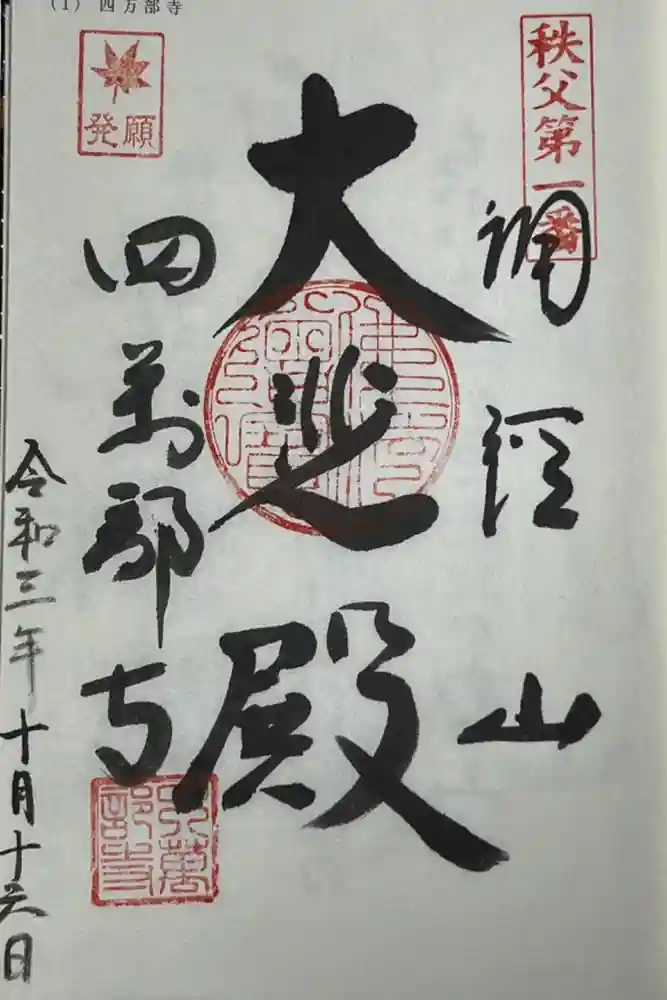 (1) 四万部寺
秩父第一番
誦經山
大悲殿
発願
四萬部寺
四萬部寺
令和三年十月十六日